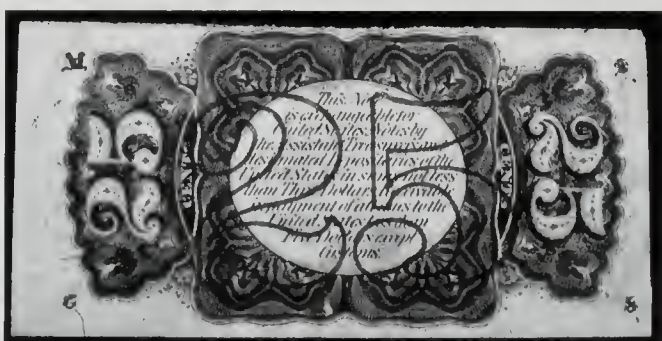 M
25
CENTS
This Note
is exchangeable for
United States Notes by
the Assistant Treasurers
designated Depositaries of the
United States in sums not less
than Three Dollars
in payment of all dues to the
United States less than
Five Dollars except
Customs.
25
CENTS
25
S